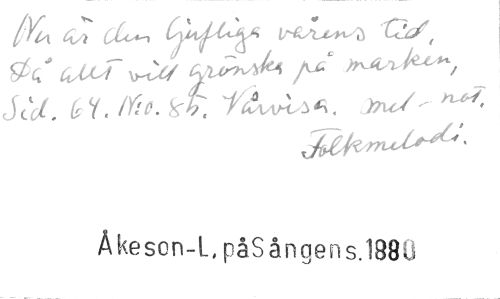 Nu är den ljufliga vårens tid,
Då allt vill grönska på marken,
Sid. 64. No. 85. Vårvisa. mel-not.
Folkmelodi.
Åkeson-L. på Sångens. 1880